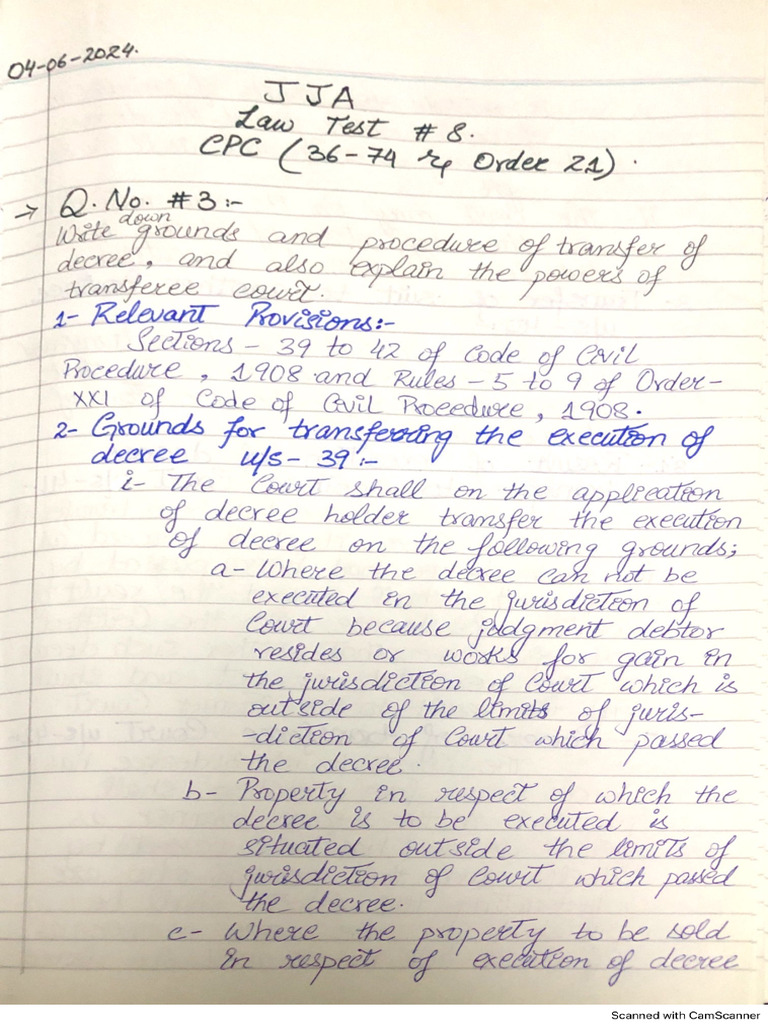 04-06-2024.
JJA
Law Test # 8.
CPC (36-74 & Order 21).
→ Q. No. #3:-
Write down grounds and procedure of transfer of
decree, and also explain the powers of
transferee court.
1- Relevant Provisions:-
Sections - 39 to 42 of Code of Civil
Procedure, 1908 and Rules - 5 to 9 of Order-
XXI of Code of Civil Procedure, 1908.
2- Grounds for transferring the execution of
decree u/s- 39:-
i- The Court shall on the application
of decree holder transfer the execution
of decree on the following grounds;
a- Where the decree can not be
executed in the jurisdiction of
Court because judgment debtor
resides or works for gain in
the jurisdiction of Court which is
outside of the limits of juris-
-diction of Court which passed
the decree.
b- Property in respect of which the
decree is to be executed is
situated outside the limits of
jurisdiction of Court which passed
the decree.
c- Where the property to be sold
in respect of execution of decree
Scanned with CamScanner